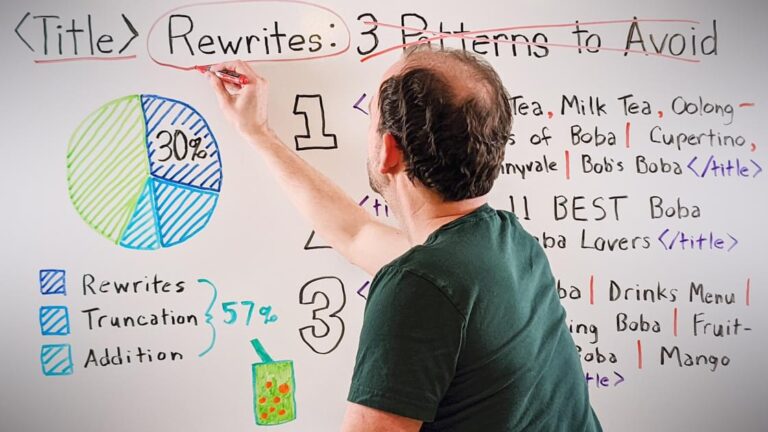 <Title> Rewrites: 3 Patterns to Avoid
30%
Rewrites
Truncation
Addition
57%
1
Tea, Milk Tea, Oolong-
of Boba | Cupertino,
| Bob's Boba </title>
11 BEST Boba
Lovers </title>
3
| Drinks Menu |
Boba | Fruit-
| Mango